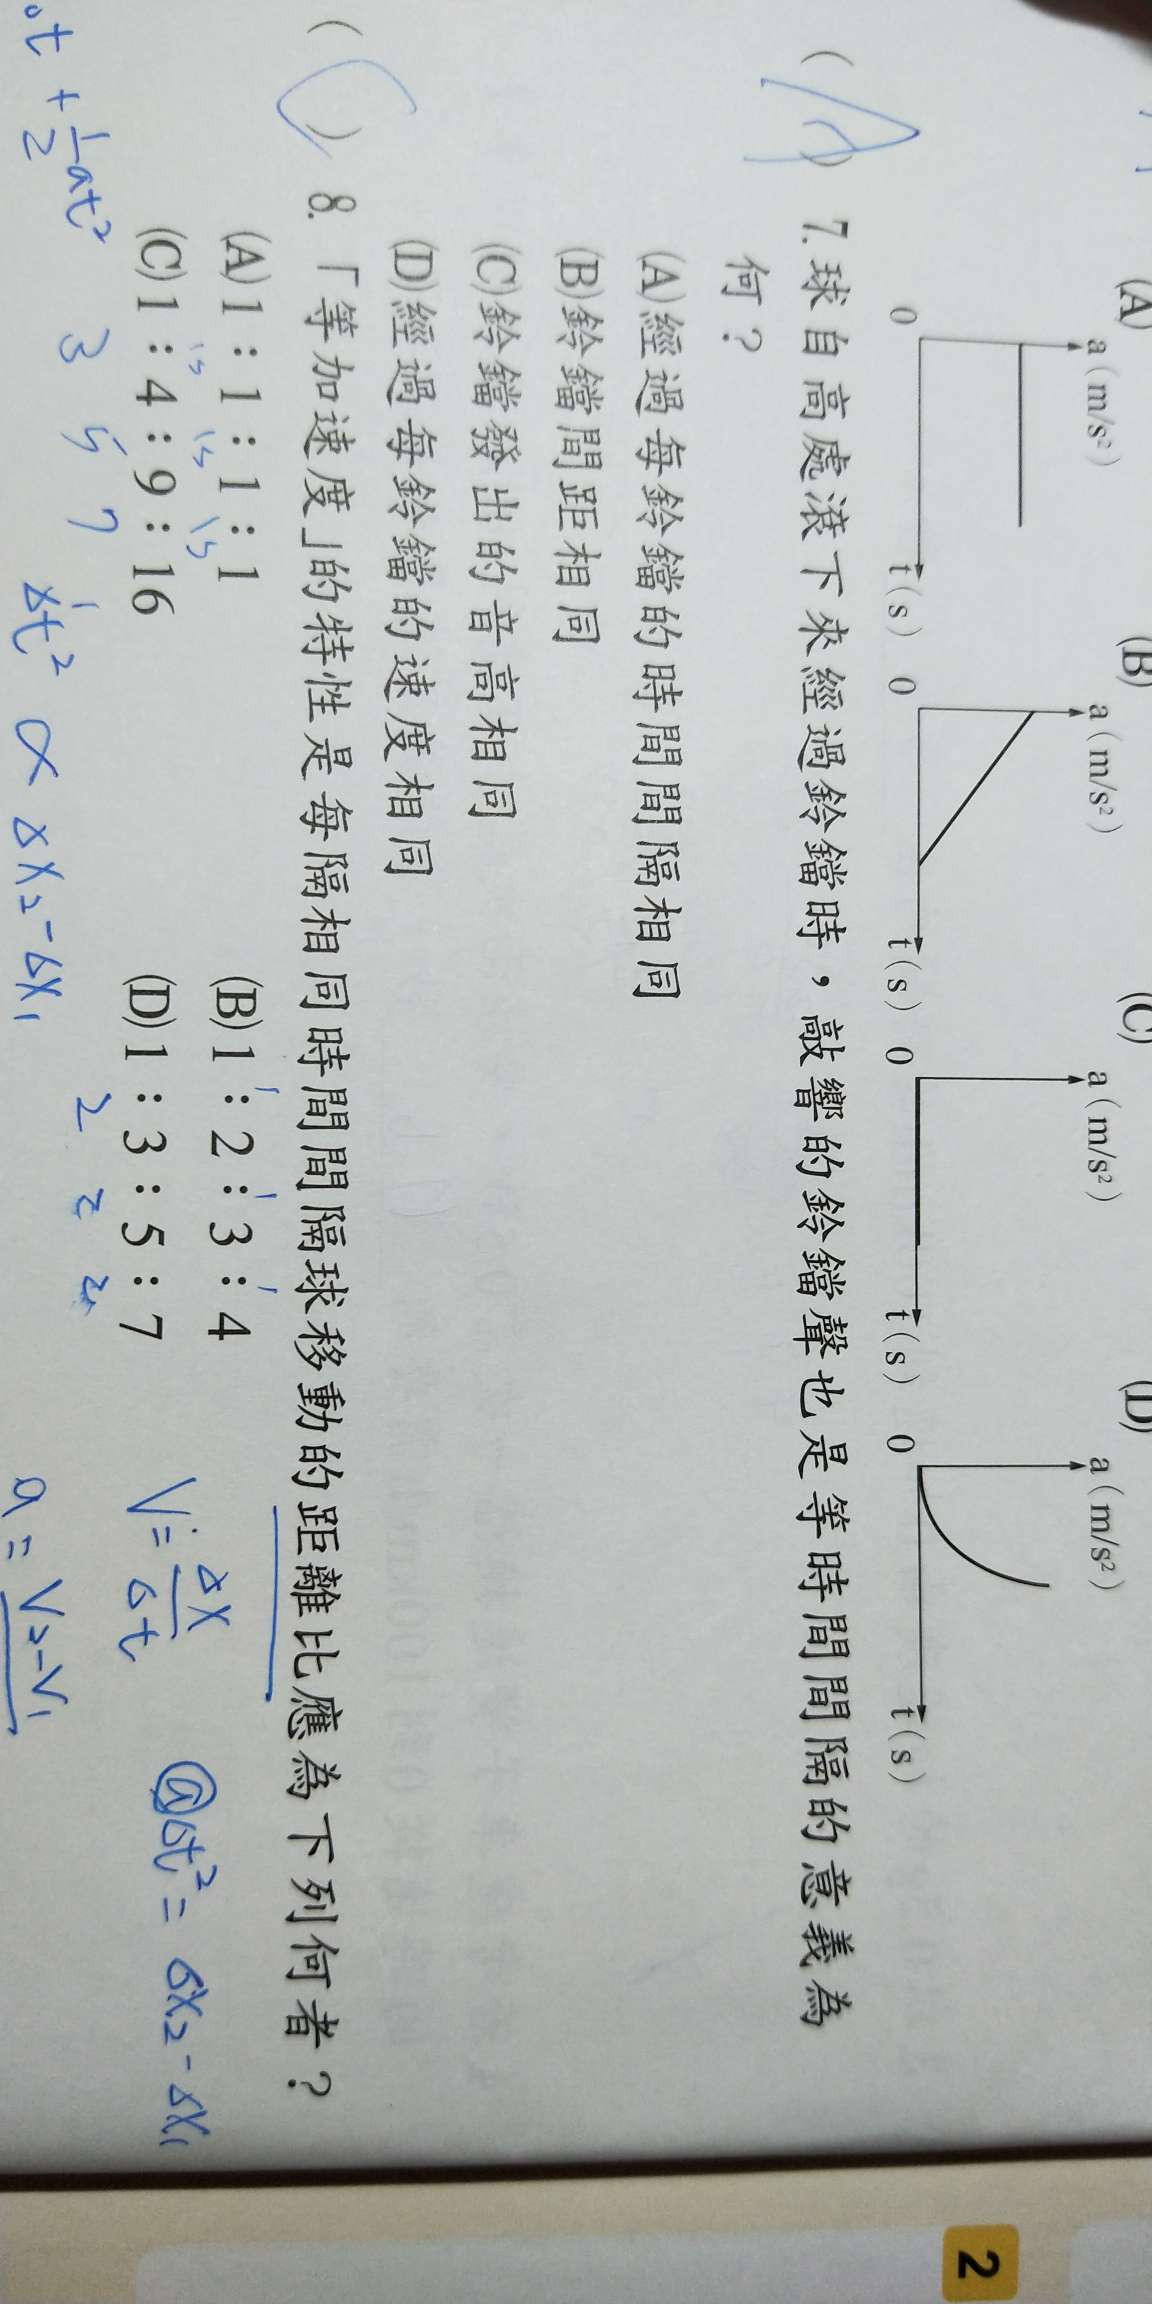 (A) (B) (C) (D)
a(m/s²) a(m/s²) a(m/s²) a(m/s²)
0 t(s) 0 t(s) 0 t(s) 0 t(s)
( A ) 7. 球自高處滾下來經過鈴鐺時，敲響的鈴鐺聲也是等時間間隔的意義為
何？
(A)經過每鈴鐺的時間間隔相同
(B)鈴鐺間距相同
(C)鈴鐺發出的音高相同
(D)經過每鈴鐺的速度相同
( C ) 8. 「等加速度」的特性是每隔相同時間間隔球移動的距離比應為下列何者？
(A)1：1：1：1 (B)1：2：3：4
1s 1s 1s 1 1 1
(C)1：4：9：16 (D)1：3：5：7
3 5 7 2 2 2
V = Δx/Δt
aΔt² = Δx₂ - Δx₁
t + 1/2 at²
Δt² ∝ Δx₂ - Δx₁
a = V₂-V₁
2